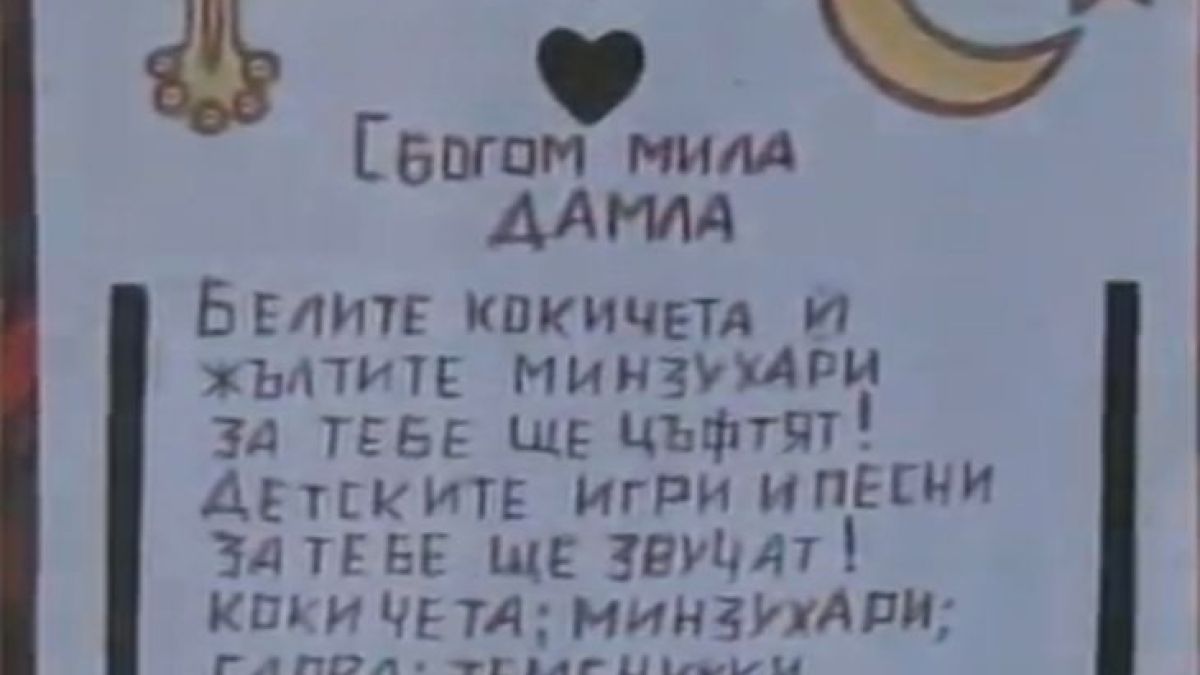 Сбогом мила
Дамла
Белите кокичета и
жълтите минзухари
за тебе ще цъфтят!
Детските игри и песни
за тебе ще звучат!
кокичета; минзухари;
теменужки